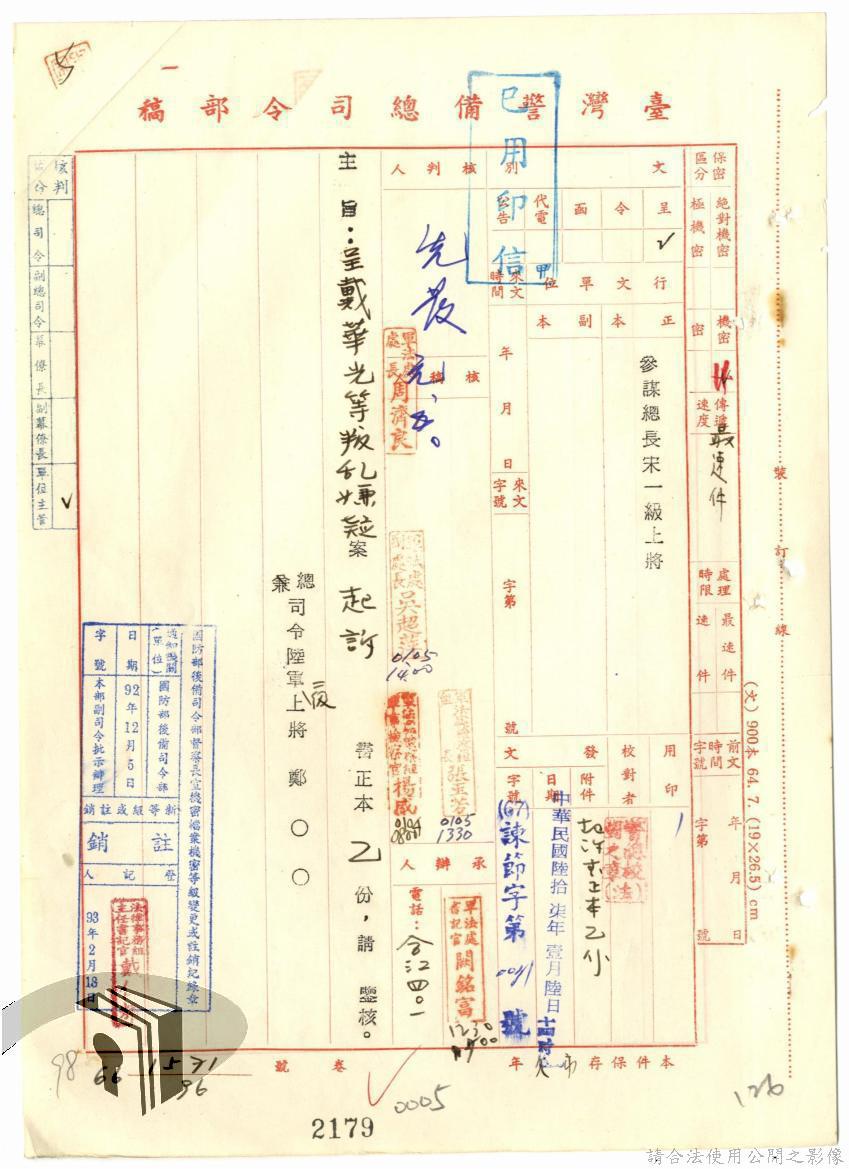 臺灣警備總司令部稿
已用印信
保密區分
絕對機密
極機密
機密
密
傳遞速度
最速件
處理時限
最速件
速件
前文時間字號
年月日
字第號
文別
呈
令
函
代電
公告
行文單位
正本
副本
參謀總長宋一級上將
來文時間
年月日
來文字號
字第號
用印
校對者
發文
附件
起訴書正本乙份
日期
中華民國陸拾柒年壹月陸日
字號
(67)諫節字第0041號
核判人
先發
元、五。
核稿人
軍法處處長周濟良
軍法處副處長吳超
0105
1400
0105
1330
楊威
承辦人
軍法處書記官闕銘富
電話：合江四〇一
主旨：呈戴華光等叛乱嫌疑案起訴書正本乙份，請鑒核。
總司令陸軍二級上將鄭〇〇
兼
核判區分
總司令
副總司令
幕僚長
副幕僚長
單位主管
國防部後備司令部督察長室機密檔案機密等級變更或註銷紀錄章
通知機關(單位)
國防部後備司令部
日期
92年12月5日
字號
本部副司令批示辦理
新等級或註銷
註銷
登記人
93年2月18日
法律事務組主任書記官戴
本件保存年
卷號
裝訂線
(文)900本 64.7.(19×26.5)cm
98
66
1571
96
0005
126
2179
請合法使用公開之影像